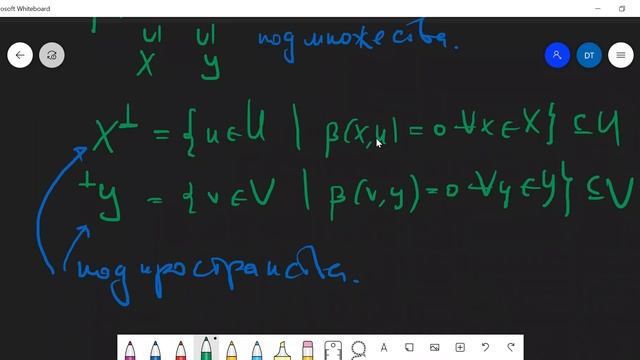 osoft Whiteboard
∪| ∪| подмножества.
X Y
DT
X^⊥ = {u∈U | β(x,u) = 0 ∀x∈X} ⊆ U
^⊥Y = {v∈V | β(v,y) = 0 ∀y∈Y} ⊆ V
подпространства.
A